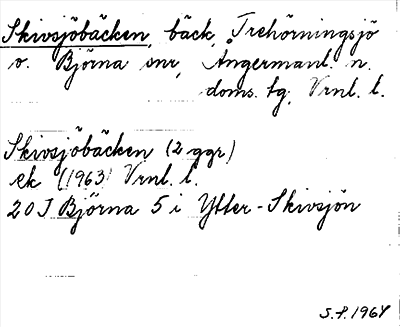 Skivsjöbäcken, bäck, Trehörningsjö
o. Björna snr, Ångermanl. n.
doms. tg, Vrnl. l.
Skivsjöbäcken (2 ggr)
ek (1963) Vrnl. l.
20J Björna 5 i Ytter-Skivsjön
S.f. 1964